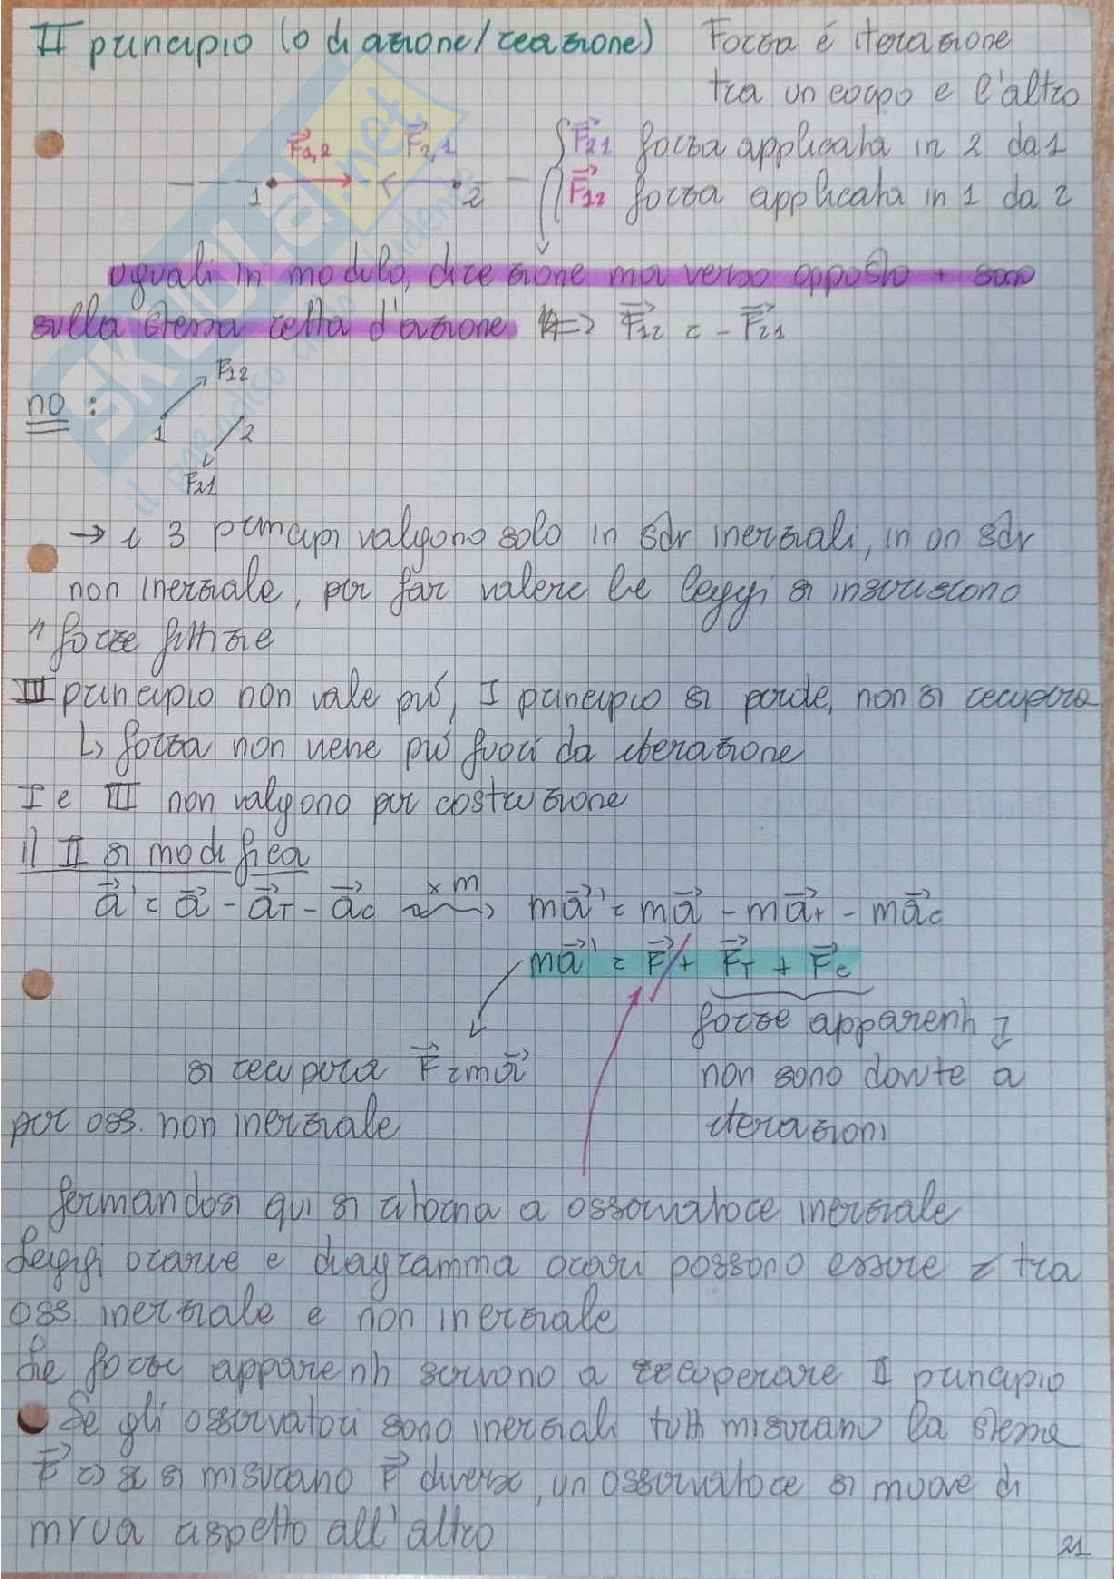 II principio (o di azione/reazione) Forza è iterazione
tra un corpo e l'altro
F1,2 F2,1 F21 forza applicata in 2 da 1
1 2 F12 forza applicata in 1 da 2
uguali in modulo, direzione ma verso opposto + sono
sulla stessa retta d'azione <=> F12 = - F21
no: F12
1 2
F21
→ i 3 principi valgono solo in sdr inerziali, in un sdr
non inerziale, per far valere le leggi si inseriscono
" forze fittizie
III principio non vale più, I principio si perde, non si recupera
↳ forza non viene più fuori da iterazione
I e III non valgono per costruzione
il II si modifica
a' = a - aT - ac ×m ma' = ma - maT - mac
ma' = F + FT + Fc
forze apparenti
si recupera F = ma non sono dovute a
per oss. non inerziale iterazioni
fermandosi qui si ritorna a osservatore inerziale
Leggi orarie e diagramma orari possono essere ≠ tra
oss. inerziale e non inerziale
Le forze apparenti servono a recuperare II principio
Se gli osservatori sono inerziali tutti misurano la stessa
F => se si misurano F diverse, un osservatore si muove di
mrua rispetto all'altro
21
SKUOLA.net
il paradiso dello studente